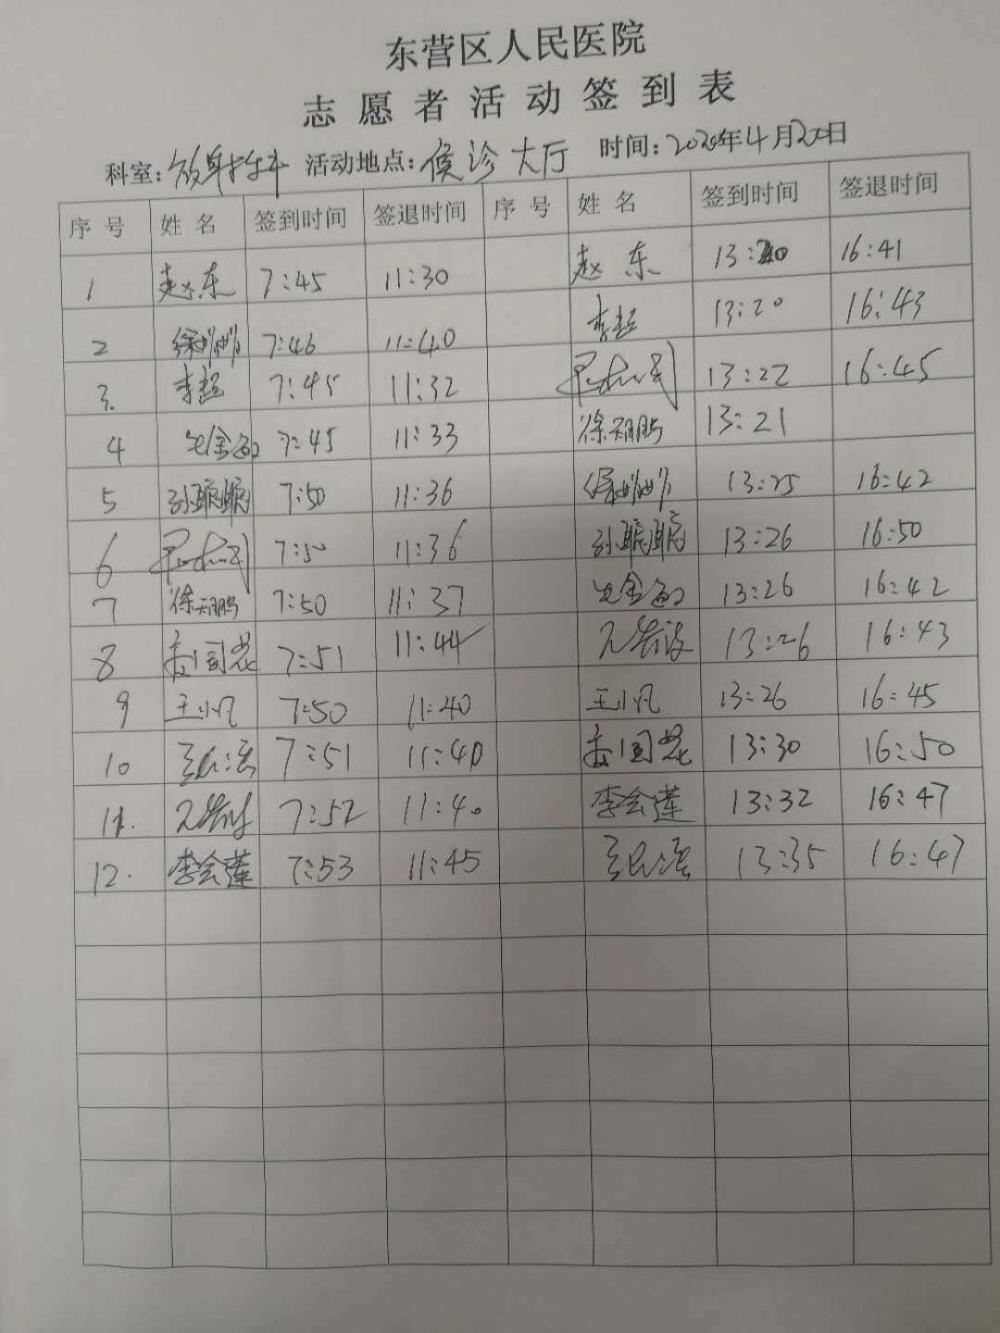 东营区人民医院
志愿者活动签到表
科室:放射科 活动地点:候诊大厅 时间:2020年4月20日
序号 姓名 签到时间 签退时间 序号 姓名 签到时间 签退时间
1 赵东 7:45 11:30 赵东 13:20 16:41
2 7:46 11:40 李超 13:20 16:43
3. 李超 7:45 11:32 13:22 16:45
4 7:45 11:33 徐翔鹏 13:21
5 孙聪聪 7:50 11:36 13:25 16:42
6 7:50 11:36 孙聪聪 13:26 16:50
7 徐翔鹏 7:50 11:37 13:26 16:42
8 国花 7:51 11:44 13:26 16:43
9 王小凡 7:50 11:40 王小凡 13:26 16:45
10 7:51 11:40 国花 13:30 16:50
11. 7:52 11:40 李会莲 13:32 16:47
12. 李会莲 7:53 11:45 13:35 16:47